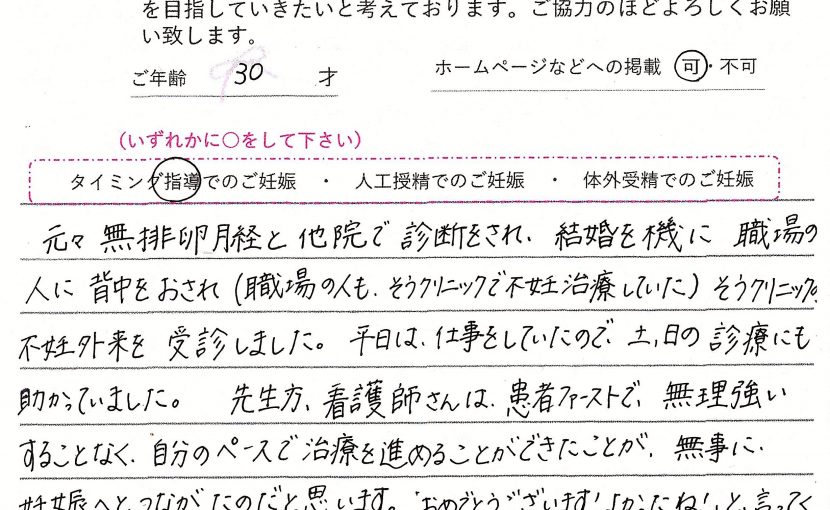 を目指していきたいと考えております。ご協力のほどよろしくお願
い致します。
ご年齢 30 才 ホームページなどへの掲載 可・不可
(いずれかに○をして下さい)
タイミング指導でのご妊娠 ・ 人工授精でのご妊娠 ・ 体外受精でのご妊娠
元々 無排卵月経と他院で診断をされ、結婚を機に 職場の
人に 背中をおされ(職場の人も、そうクリニックで不妊治療していた)そうクリニックの
不妊外来を 受診しました。平日は、仕事をしていたので、土、日の診療にも
助かっていました。 先生方、看護師さんは、患者ファーストで、無理強い
することなく、自分のペースで治療を進めることができたことが、無事に、
妊娠へとつながたのだと思います。「おめでとうございます!よかったね!」と言ってく